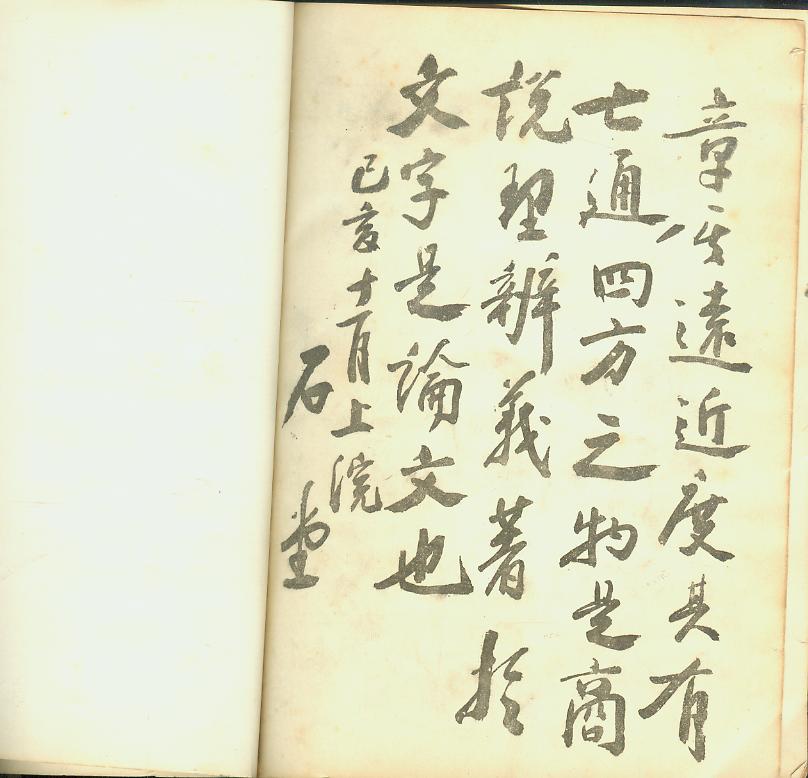 章其遠近度其有
亡通四方之物是商
説理辨義著於
文字是論文也
己亥十一月上浣
石堂